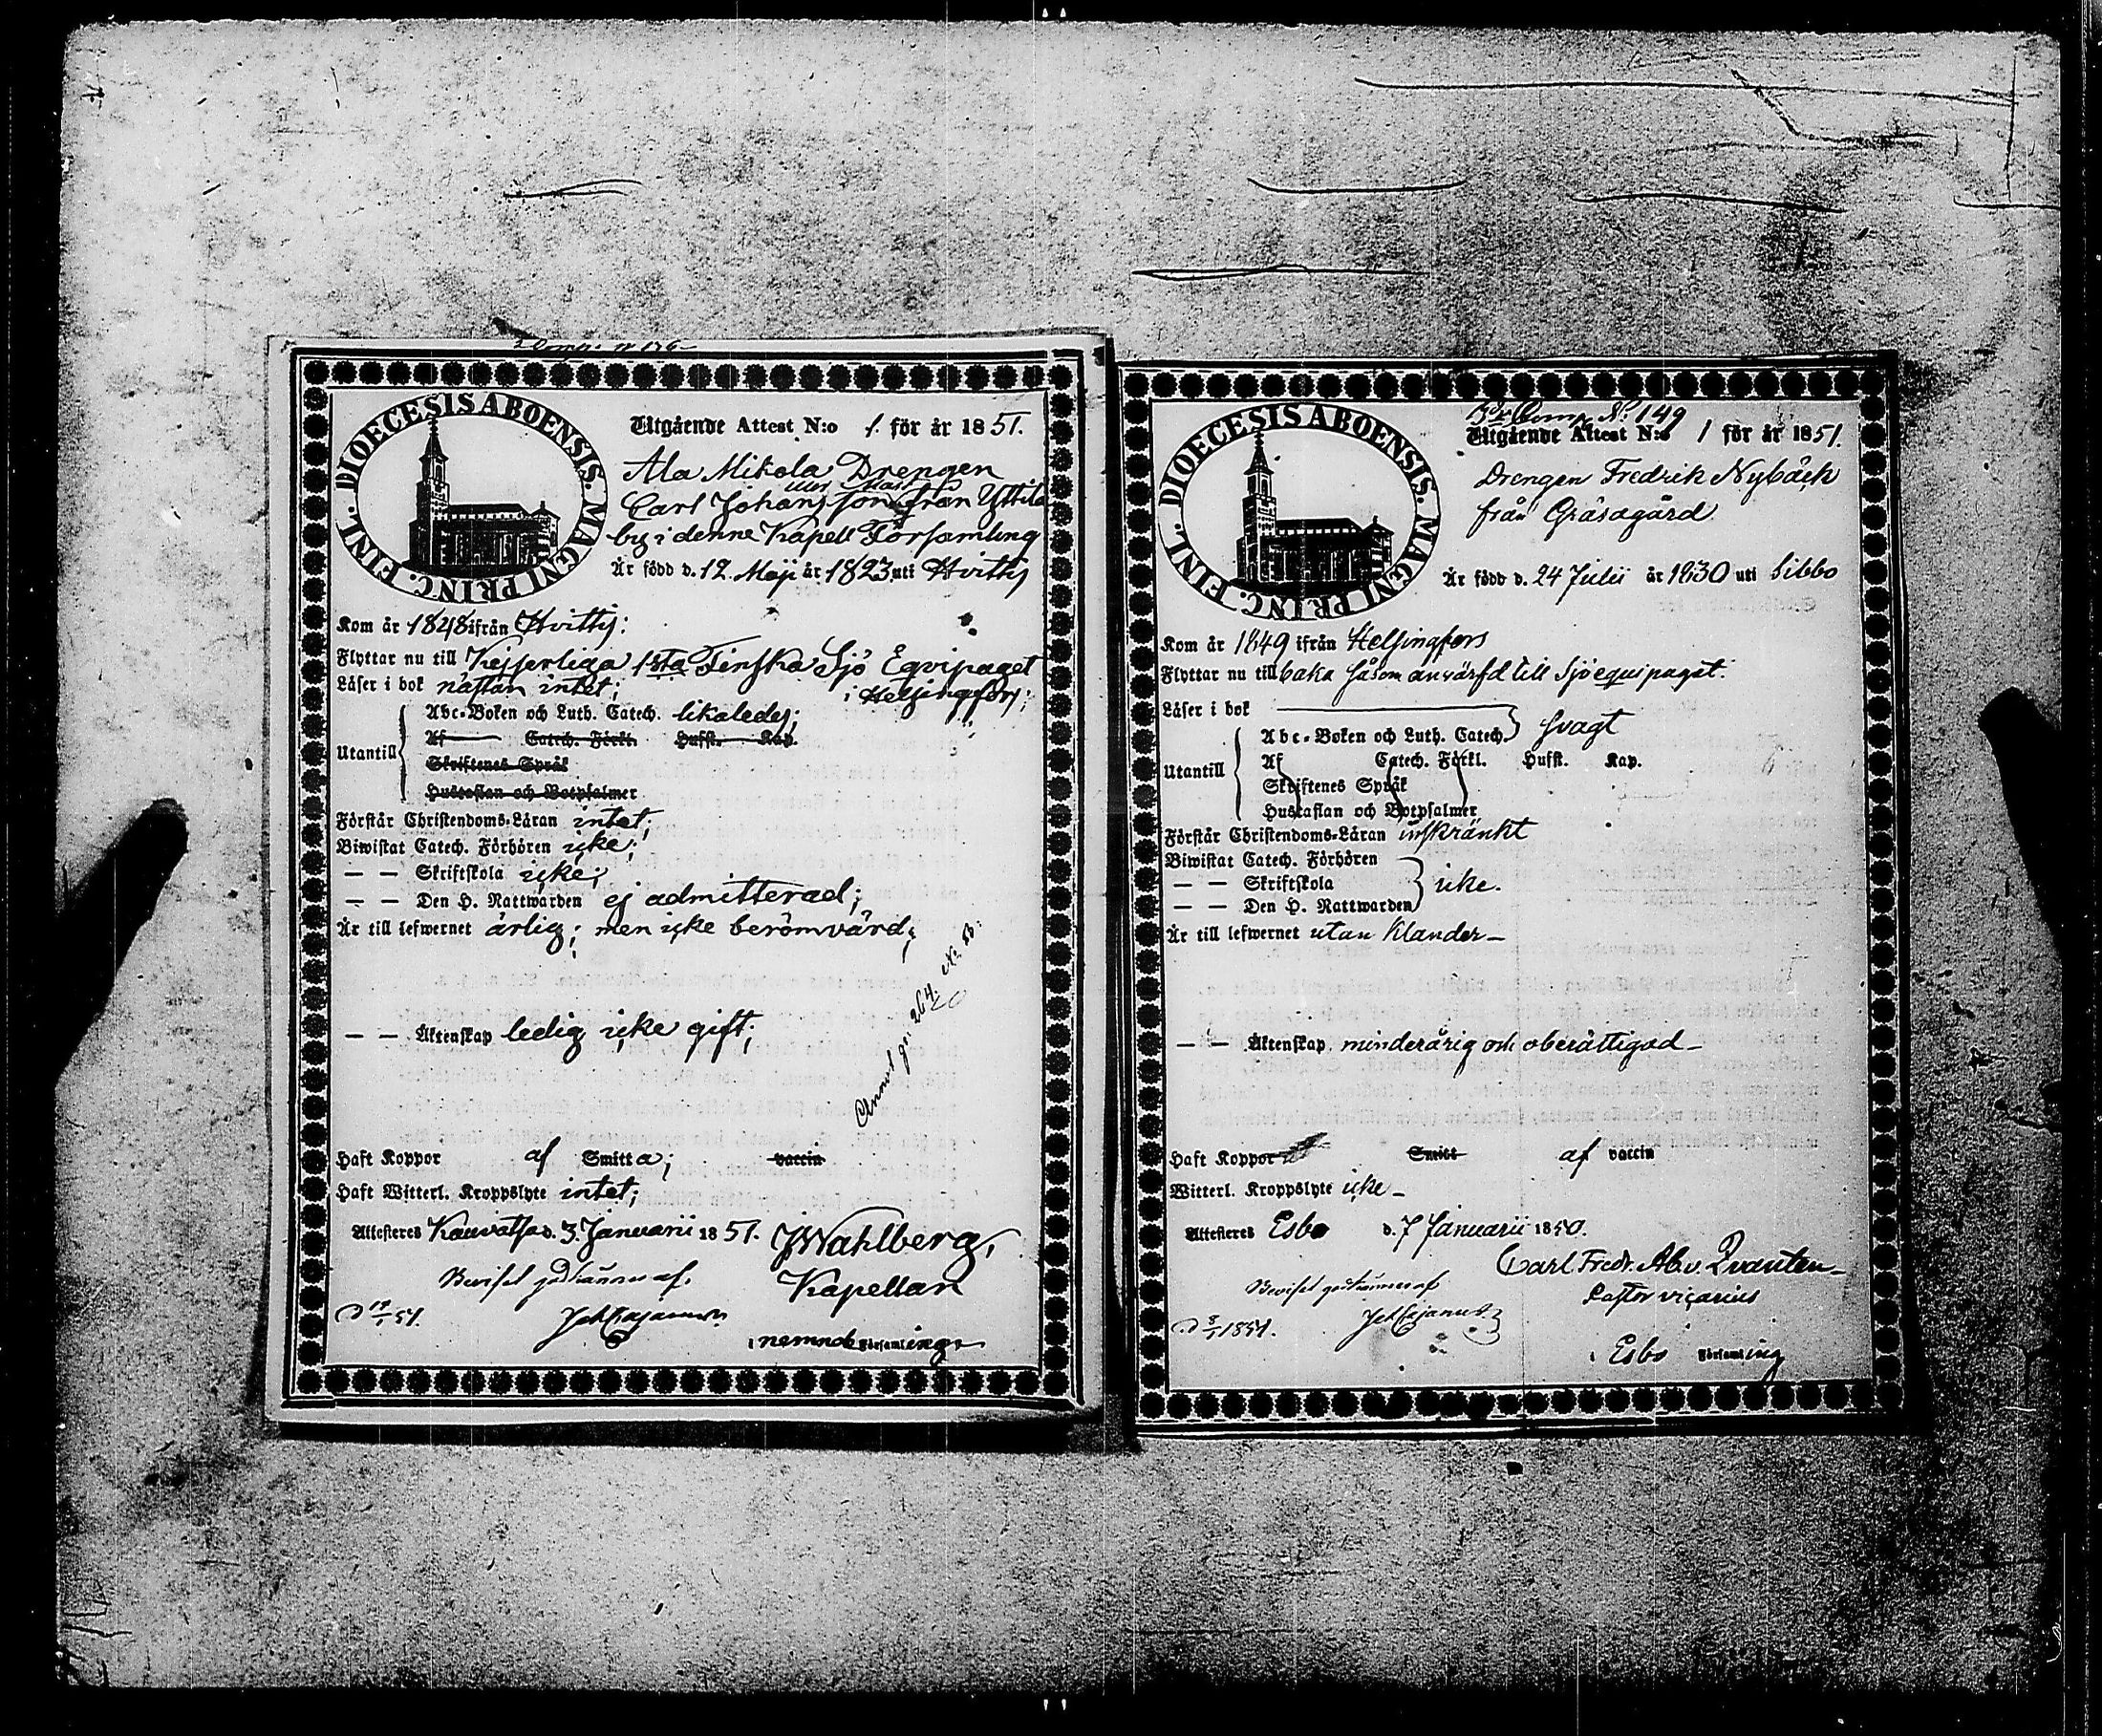 DIOECESIS ABOENSIS. MAGNI PRINC. FINL.
Utgående Attest N:o 1. för år 1851.
Ala Mikola Drengen
Carl Johansson från Yttilä
by i denne Kapell Församling
Är född d. 12 Maji år 1823 uti Hvittis
Kom år 1848 ifrån Hvittis:
Flyttar nu till Kejserliga 1sta Finska Sjö Eqvipaget
i Helsingfors;
Läser i bok nästan intet;
Utantill
Abc-Boken och Luth. Catech. likaledes;
Af Catech. Förkl. Husst. Kap.
Skriftenes Språk
Hustaflan och Botpsalmer
Förstår Christendoms-Läran intet;
Biwistat Catech. Förhören icke;
— — Skriftskola icke;
— — Den H. Nattwarden ej admitterad;
Är till lefwernet ärlig; men icke berömvärd;
— — Äktenskap ledig icke gift;
Annot. pag. 264. No. 83.
Haft Koppor af Smitta; vaccin
Haft Witterl. Kroppslyte intet;
Attesteras Kauvatsa d. 3 Januarii 1851. J Wahlberg,
Kapellan
Beviset godkännes af.
Joh Cajanus
i nemnde Församling
DIOECESIS ABOENSIS. MAGNI PRINC. FINL.
Comp. No 149
Utgående Attest N:o 1 för år 1851.
Drengen Fredrik Nybäck
från Gräsagård
Är född d. 24 Julii år 1830 uti Sibbo
Kom år 1849 ifrån Helsingfors
Flyttar nu till baka såsom anvärfd till Sjöequipaget.
Läser i bok
Utantill
Abc-Boken och Luth. Catech. svagt
Af Catech. Förkl. Husst. Kap.
Skriftenes Språk
Hustaflan och Botpsalmer
Förstår Christendoms-Läran inskränkt
Biwistat Catech. Förhören
— — Skriftskola icke.
— — Den H. Nattwarden
Är till lefwernet utan klander—
— — Äktenskap minderårig och oberättigad—
Haft Koppor Smitt af vaccin
Witterl. Kroppslyte icke—
Attesteras Esbo d. 7 Januarii 1850.
Carl Fredr. Ab. v. Qvanten—
Pastor vicarius
Beviset godkännes af
Joh Cajanus
d 8/1 1851.
i Esbo Församling